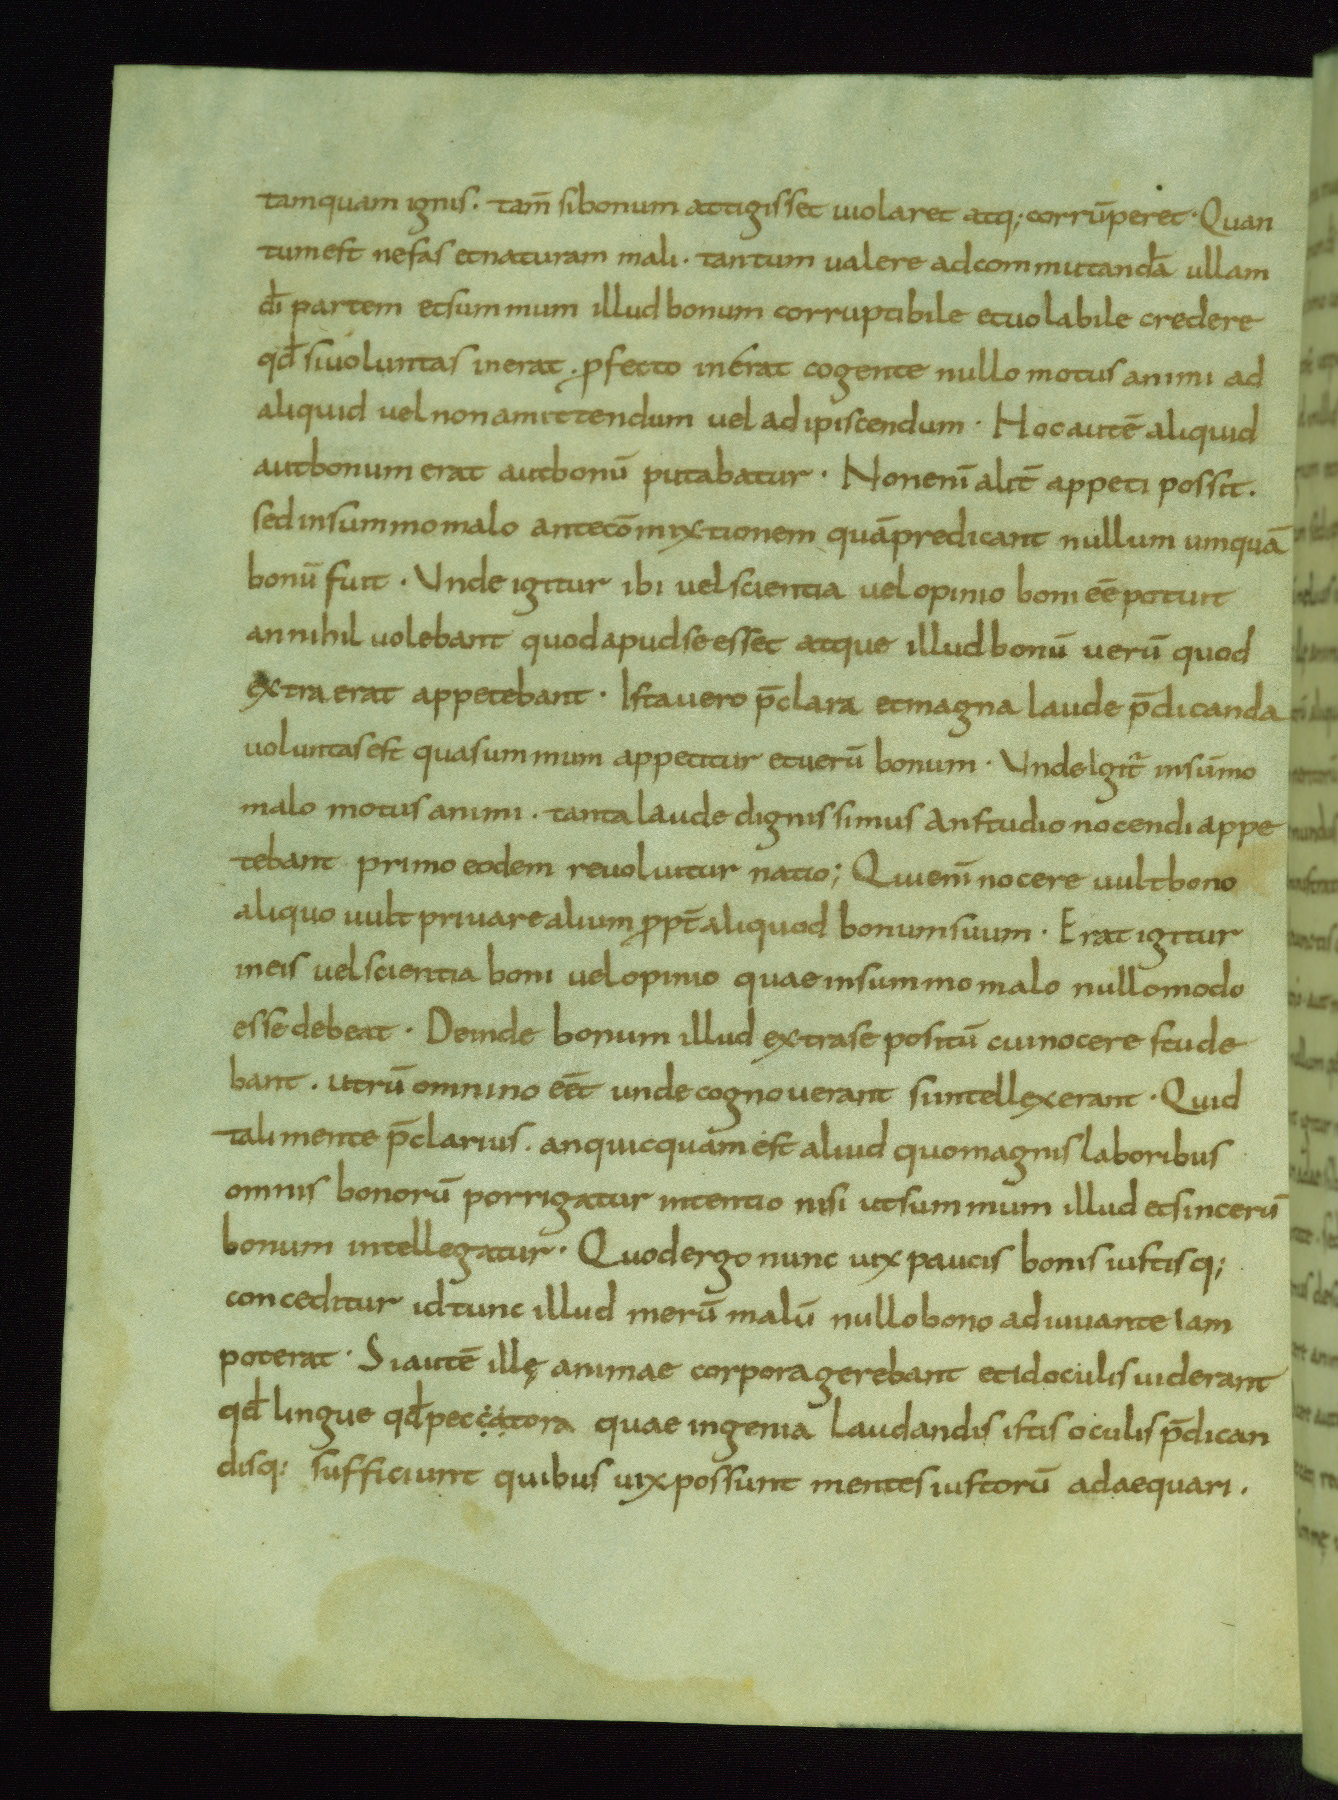 tamquam ignis. tam̄ si bonum attigisset uiolaret atq; corrūperet. Quan
tum est nefas et naturam mali. tantum ualere ad commutandā ullam
dī partem et summum illud bonum corruptibile et uolabile credere
qđ si uoluntas inerat. ꝓfecto inerat cogente nullo motus animi ad
aliquid uel non amittendum uel adipiscendum. Hoc autē aliquid
aut bonum erat aut bonū putabatur. Non enī alit̄ appeti possit.
sed in summo malo ante cōmixtionem quā predicant nullum umquā
bonū fuit. Unde igitur ibi uel scientia uel opinio boni eē potuit
an nihil uolebant quod apud se esset atque illud bonū uerū quod
extra erat appetebant. Ista uero p̄clara et magna laude p̄dicanda
uoluntas est qua summum appetitur et uerū bonum. Unde igit̄ in sūmo
malo motus animi. tanta laude dignissimus an studio nocendi appe
tebant primo eodem reuoluitur natio; Qui enī nocere uult bono
aliquo uult priuare alium ꝓpt̄ aliquod bonum suum. Erat igitur
in eis uel scientia boni uel opinio quae in summo malo nullo modo
esse debeat. Deinde bonum illud extra se positū cui nocere stude
bant. utrū omnino eēt unde cognouerant si intellexerant. Quid
tali mente p̄clarius. an quicquam est aliud quo magnis laboribus
omnis bonorū porrigatur intentio nisi ut summum illud et sincerū
bonum intellegatur. Quod ergo nunc uix paucis bonis iustisq;
conceditur id tunc illud merū malū nullo bono adiuuante iam
poterat. Si autē illę animae corpora gerebant et id oculis uiderant
qđ lingue qđ peccatora quae ingenia laudandis istis oculis p̄dican
disq; sufficiunt quibus uix possunt mentes iustorū adaequari.